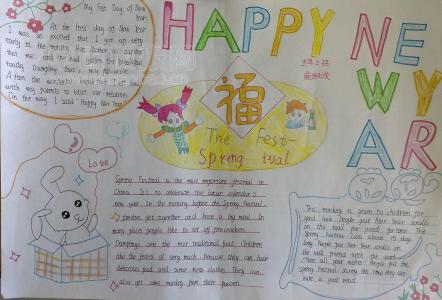 HAPPY NEW
WYAR
My Fist Day of New
Year
At the first day of New Year
I was so excited that I got up very
early in the morning. But Mother is earlier
that me. and she had gotten the breakfast
ready. Dumpling that's my favourite.
After the wonderful breakfast I
with my parents to visit our relatives
On the way, I said "Happy New Year"
福
The Fest-
Spring ival
Love
Spring Festival is the most important festival in
China. It's to celebrate the lunar calendar's
new year. In the evening before the Spring Festival
families get together and have a big meal. In
many places people like to set off firecrackers.
Dumplings are the most traditional food. Children
like the festival very much, because they can have
delicious food and wear new clothes. They can
also get some money from their parents.
This money is given to children for
good luck. People put New Year scrolls
on the wall for good fortune. The
Spring Festival lasts about 15 days
long. People
the
spring Festival during the they can
have a good